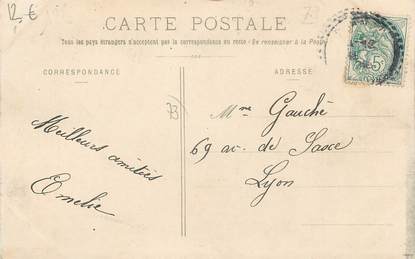 12 €
73
CARTE POSTALE
Tous les pays étrangers n'acceptent pas la correspondance au recto (Se renseigner à la Poste)
CORRESPONDANCE
ADRESSE
73
Meilleurs amitiés
Emelie
Mme Gauché
69 av. de Saxe
Lyon
5